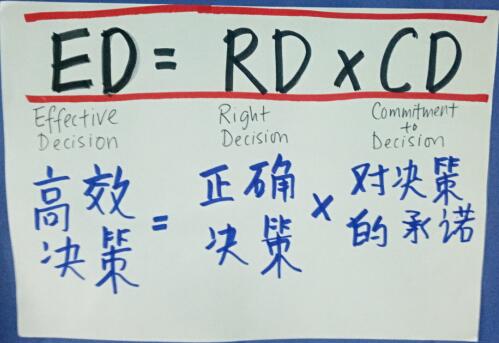 ED = RD x CD
Effective Right Commitment
Decision Decision to
Decision
高效 = 正确 x 对决策
决策 决策 的承诺